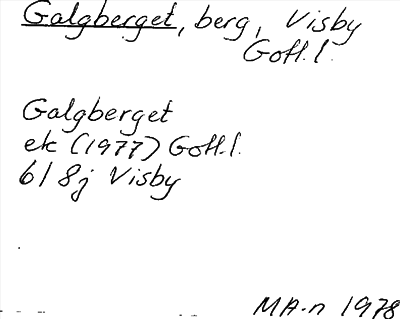 Galgberget, berg, Visby
Gotl. l.
Galgberget
ek (1977) Gotl. l.
6I 8j Visby
MA-n 1978